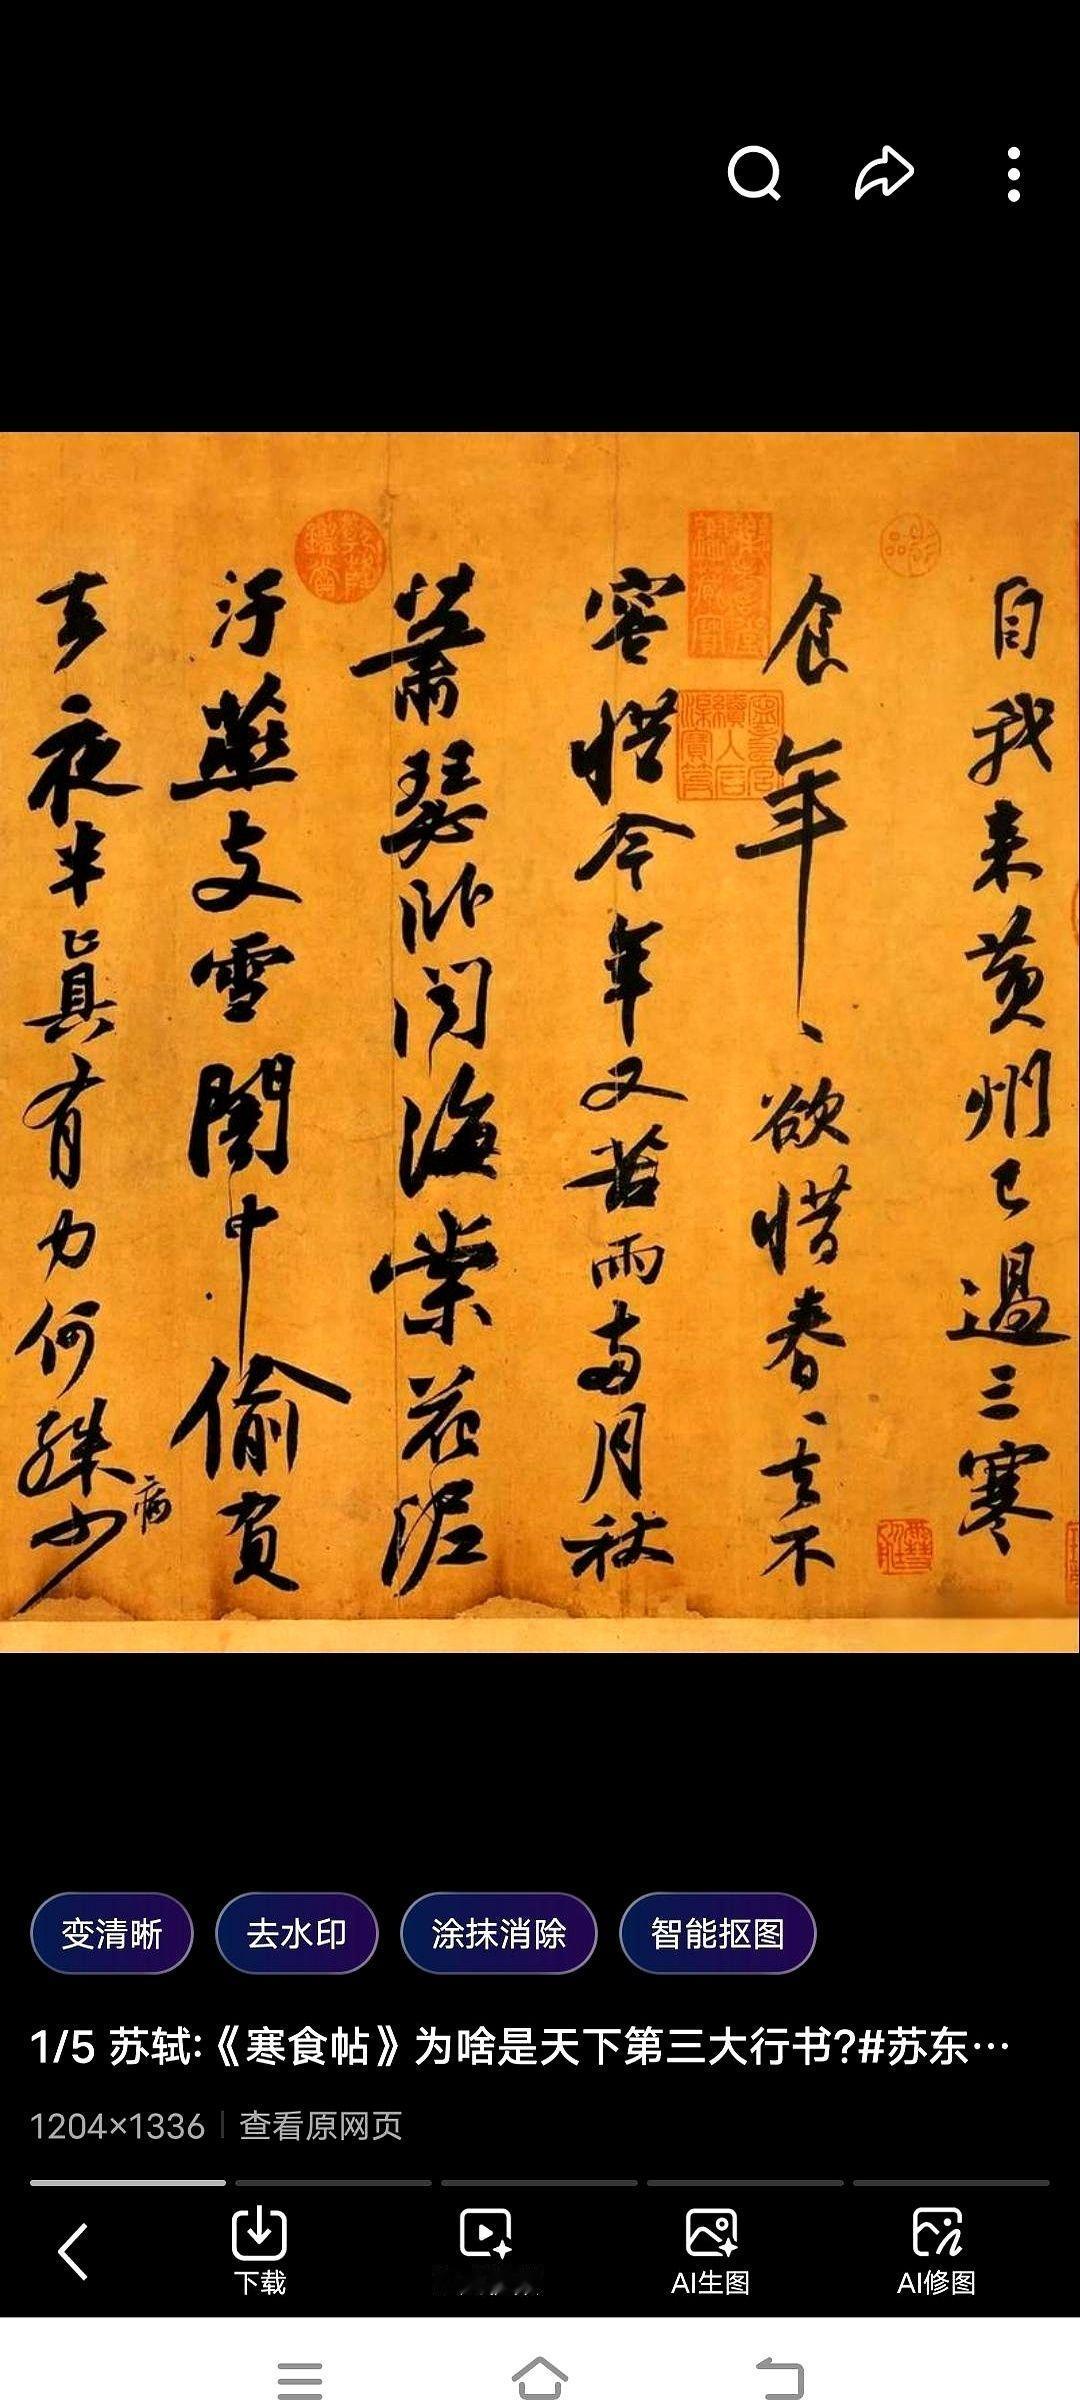 自我来黄州已過三寒
食年、欲惜春、去不
容惜今年又苦雨兩月秋
蕭瑟卧聞海棠花泥
汙燕支雪闇中偷負
去夜半真有力何殊少
病
变清晰
去水印
涂抹消除
智能抠图
1/5 苏轼:《寒食帖》为啥是天下第三大行书?#苏东…
1204×1336 | 查看原网页
下载
AI生图
AI修图